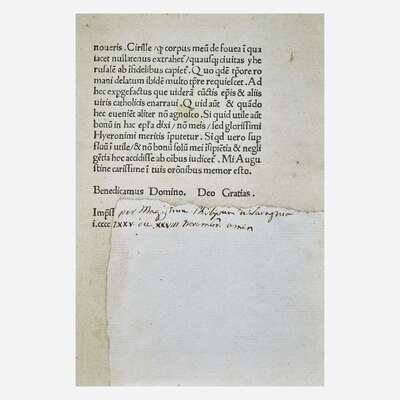 noueris. Cirille q̃ corpus meũ de fouea ĩ qua
iacet nullatenus extrahet̃/quausq̃ ciuitas yhe
rusalẽ ab ĩfidelibus capiet̃. Quo qdẽ tp̃ore ro
mani delatum ibidẽ multo tp̃re requiescet. Ad
hec expgefactus que viderã cũctis ep̃is & aliis
viris catholicis enarraui. Quid aũt & quãdo
hec eueniẽt aliter nõ agnosco. Si quid utile aũt
bonũ in hac ep̃ra dixi/nõ meis/sed gloriissimi
Hyeronimi meritis ĩputetur. Si qd̃ uero sup
fluũ ĩ utile/& nõ bonũ solũ mei ĩsipiẽtia & negli
gẽtia hec accidisse ab oibus iudicet̃. Mi Augu
stine carissime ĩ tuis orõnibus memor esto.
Benedicamus Domino. Deo Gratias.
Imp̃ss per Magistrum Philippum de
i.cccc.lxxv die xxviii Novembris amen